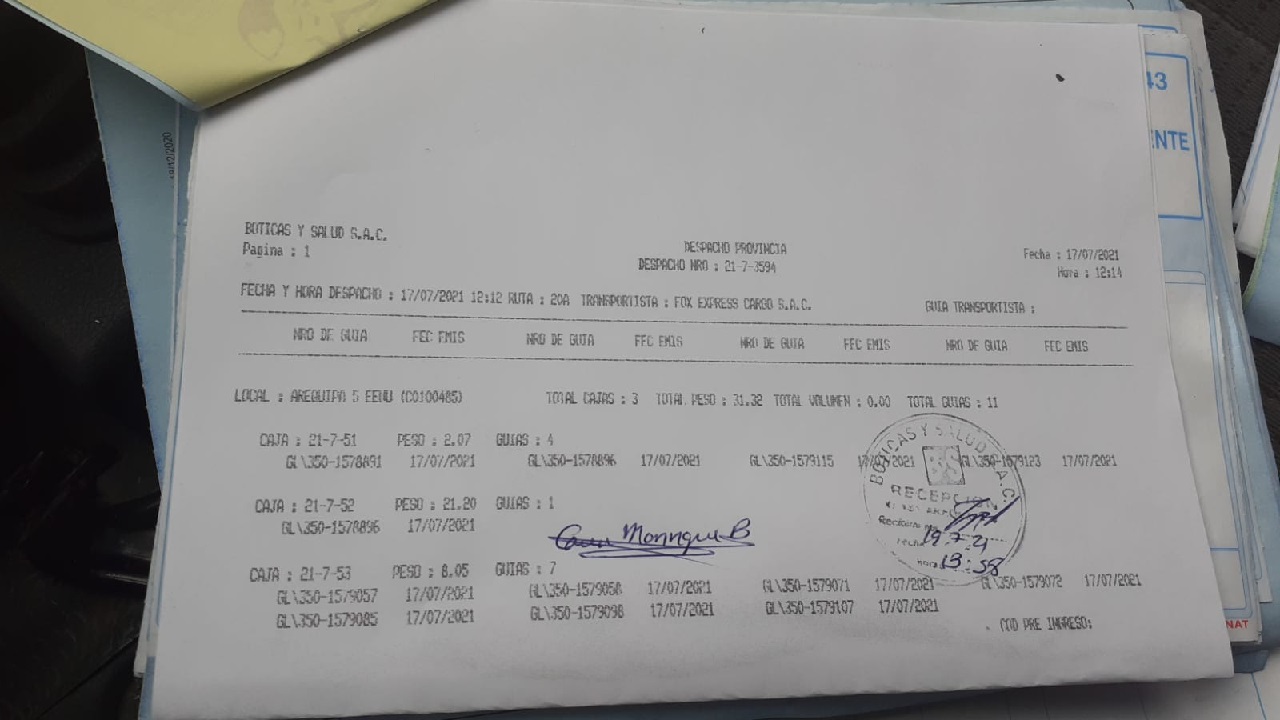 18/12/2020
43
ENTE
BOTICAS Y SALUD S.A.C.
Pagina : 1
DESPACHO PROVINCIA
DESPACHO NRO : 21-7-3594
Fecha : 17/07/2021
Hora : 12:14
FECHA Y HORA DESPACHO : 17/07/2021 12:12 RUTA : 20A TRANSPORTISTA : FOX EXPRESS CARGO S.A.C. GUIA TRANSPORTISTA :
NRO DE GUIA FEC EMIS NRO DE GUIA FEC EMIS NRO DE GUIA FEC EMIS NRO DE GUIA FEC EMIS
LOCAL : AREQUIPA 5 EEUU (C0100485) TOTAL CAJAS : 3 TOTAL PESO : 31.32 TOTAL VOLUMEN : 0.00 TOTAL GUIAS : 11
CAJA : 21-7-51 PESO : 2.07 GUIAS : 4
GL\350-1578891 17/07/2021 GL\350-1578896 17/07/2021 GL\350-1579115 17/07/2021 GL\350-1579123 17/07/2021
BOTICAS Y SALUD S.A.C.
RECEPCION
CAJA : 21-7-52 PESO : 21.20 GUIAS : 1
GL\350-1578896 17/07/2021
Manrique B
Fecha 19-7-21
Hora 13:58
CAJA : 21-7-53 PESO : 8.05 GUIAS : 7
GL\350-1579057 17/07/2021 GL\350-1579058 17/07/2021 GL\350-1579071 17/07/2021 GL\350-1579072 17/07/2021
GL\350-1579085 17/07/2021 GL\350-1579098 17/07/2021 GL\350-1579107 17/07/2021
. COD PRE INGRESO:
NAT